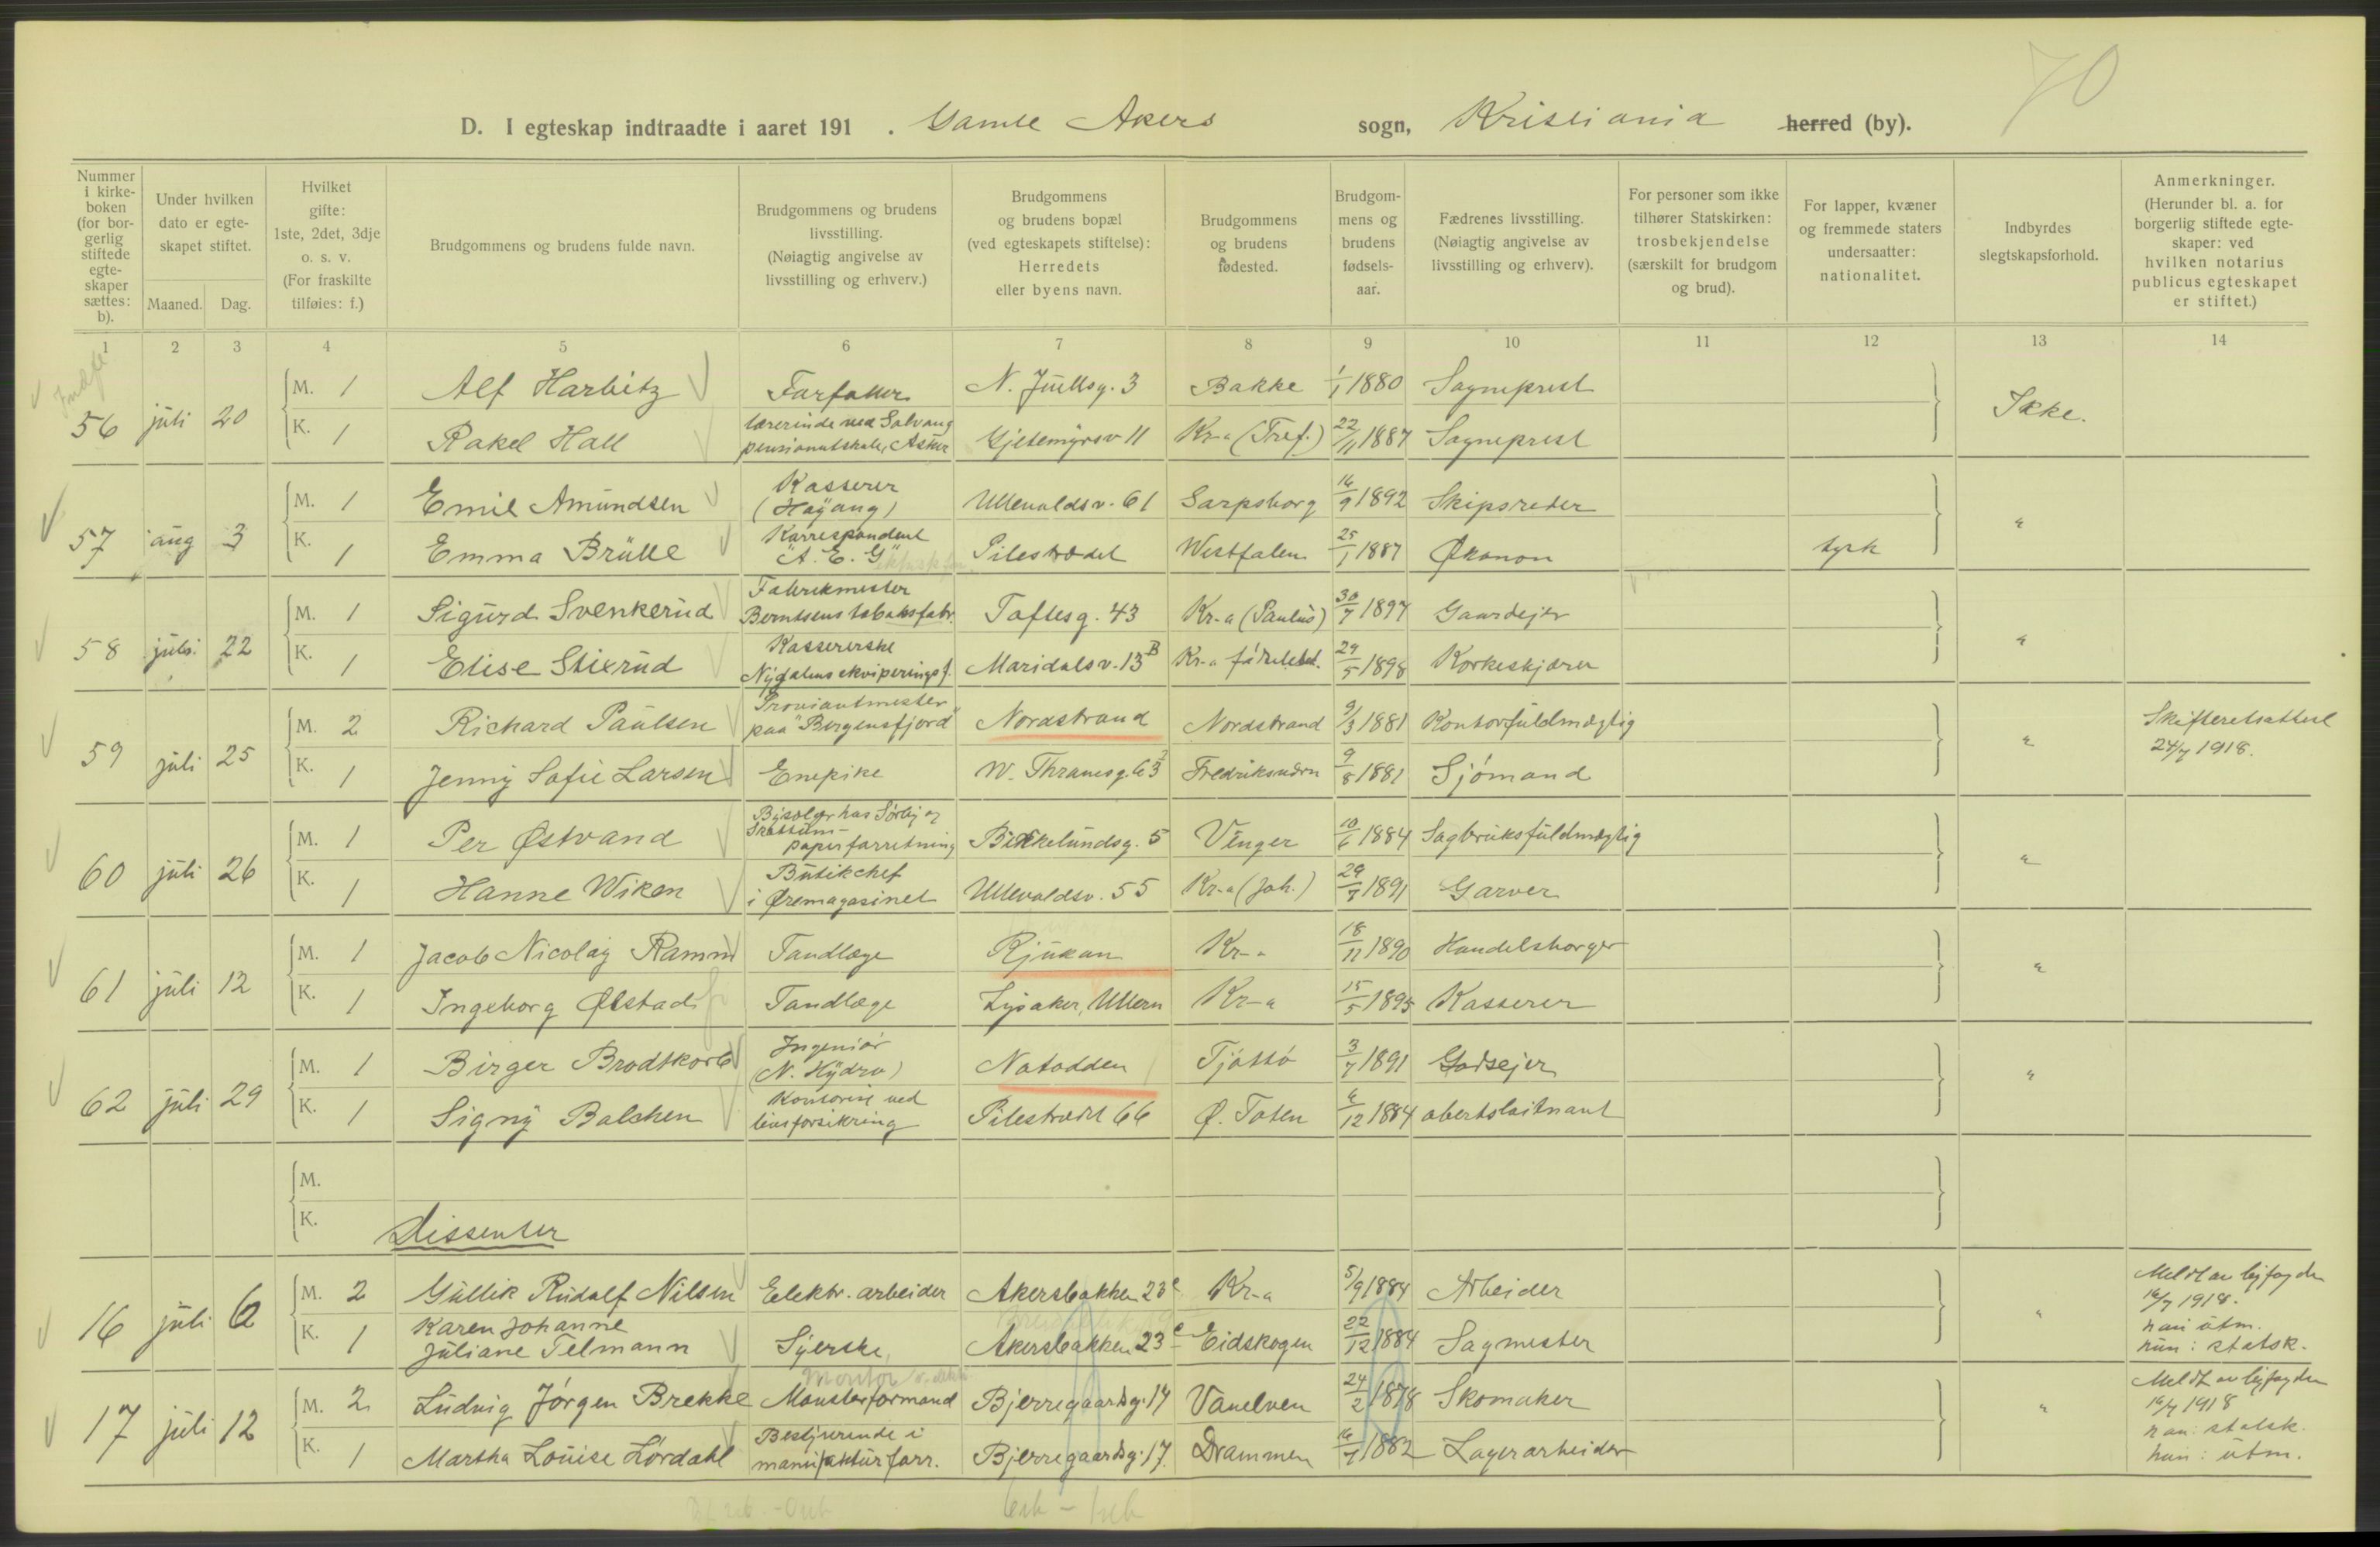 70
D. I egteskap indtraadte i aaret 191 . Gamle Akers sogn, Kristiania herred (by).
Nummer i kirkeboken (for borgerlig stiftede egteskaper sættes: b).
Under hvilken dato er egteskapet stiftet.
Maaned. Dag.
Hvilket gifte: 1ste, 2det, 3dje o. s. v. (For fraskilte tilføies: f.)
Brudgommens og brudens fulde navn.
Brudgommens og brudens livsstilling. (Nøiagtig angivelse av livsstilling og erhverv.)
Brudgommens og brudens bopæl (ved egteskapets stiftelse): Herredets eller byens navn.
Brudgommens og brudens fødested.
Brudgommens og brudens fødselsaar.
Fædrenes livsstilling. (Nøiagtig angivelse av livsstilling og erhverv).
For personer som ikke tilhører Statskirken: trosbekjendelse (særskilt for brudgom og brud).
For lapper, kvæner og fremmede staters undersaatter: nationalitet.
Indbyrdes slegtskapsforhold.
Anmerkninger. (Herunder bl. a. for borgerlig stiftede egteskaper: ved hvilken notarius publicus egteskapet er stiftet.)
1 2 3 4 5 6 7 8 9 10 11 12 13 14
56 juli 20 M. 1 Alf Harbitz Forfatter N. Juelsg. 3 Bakke 1/1 1880 Sogneprest Ikke.
K. 1 Rakel Hall lærerinde ved Solvang pensionatskole, Asker Gjetemyrsv 11 Kr-a (Tref.) 22/11 1887 Sogneprest
57 aug 3 M. 1 Emil Amundsen Kasserer (Høyang) Ullevoldsv. 61 Sarpsborg 16/9 1892 Skipsreder "
K. 1 Emma Brülle Korrespondent "A. E. G" Pilestrædet Westfalen 25/1 1887 Økonom tysk
58 juli 22 M. 1 Sigurd Svenkerud Fabrikmester Berntsens tobaksfabr. Toftesg. 43 Kr-a (Paulus) 30/7 1897 Gaardejer "
K. 1 Elise Stixrud Kassererske Nydalens ekviperingsf. Maridalsv. 13 B Kr-a 29/5 1898 Korkeskjærer
59 juli 25 M. 2 Richard Paulsen Proviantmester paa "Bergensfjord" Nordstrand Nordstrand 9/3 1881 Kontorfuldmægtig " Skifteretsattest 24/7 1918.
K. 1 Jenny Sofie Larsen Enepike W. Thranesg. 63 Fredriksværn 9/8 1881 Sjømand
60 juli 26 M. 1 Per Østvand Byselger hos Sørby og papirforretning Birkelundsg. 5 Vinger 10/6 1884 Sagbruksfuldmægtig "
K. 1 Hanne Wiken Butikchef i Øremagasinet Ullevoldsv. 55 Kr-a (Joh.) 29/7 1891 Garver
61 juli 12 M. 1 Jacob Nicolay Ramm Tandlæge Rjukan Kr-a 18/11 1890 Handelsborger "
K. 1 Ingeborg Ølstad Tandlæge Lysaker, Ullern Kr-a 15/5 1895 Kasserer
62 juli 29 M. 1 Birger Brodtkorb Ingeniør (N. Hydro) Notodden Tjøttø 3/7 1891 Godsejer "
K. 1 Signy Balchen Kontorist ved livsforsikring Pilestrædet 66 Ø. Toten 6/12 1884 oberstløitnant
M.
K.
Dissenter
16 juli 6 M. 2 Gullik Rudolf Nilsen Elektr. arbeider Akersbakken 23 c Kr-a 5/9 1884 Arbeider " Meldt av byfogden 16/7 1918. han utm. hun: statsk.
K. 1 Karen Johanne Juliane Telmann Syerske Akersbakken 23 c Eidskogen 22/12 1884 Sagmester
17 juli 12 M. 2 Ludvig Jørgen Brekke Montørformand Bjerregaardsg. 17 Vanelven 24/2 1878 Skomaker " Meldt av byfogden 16/7 1918 han: statsk. hun: utm.
K. 1 Martha Louise Lørdahl Bestyrerinde i manufakturforr. Bjerregaardsg. 17. Drammen 16/7 1882 Lagerarbeider